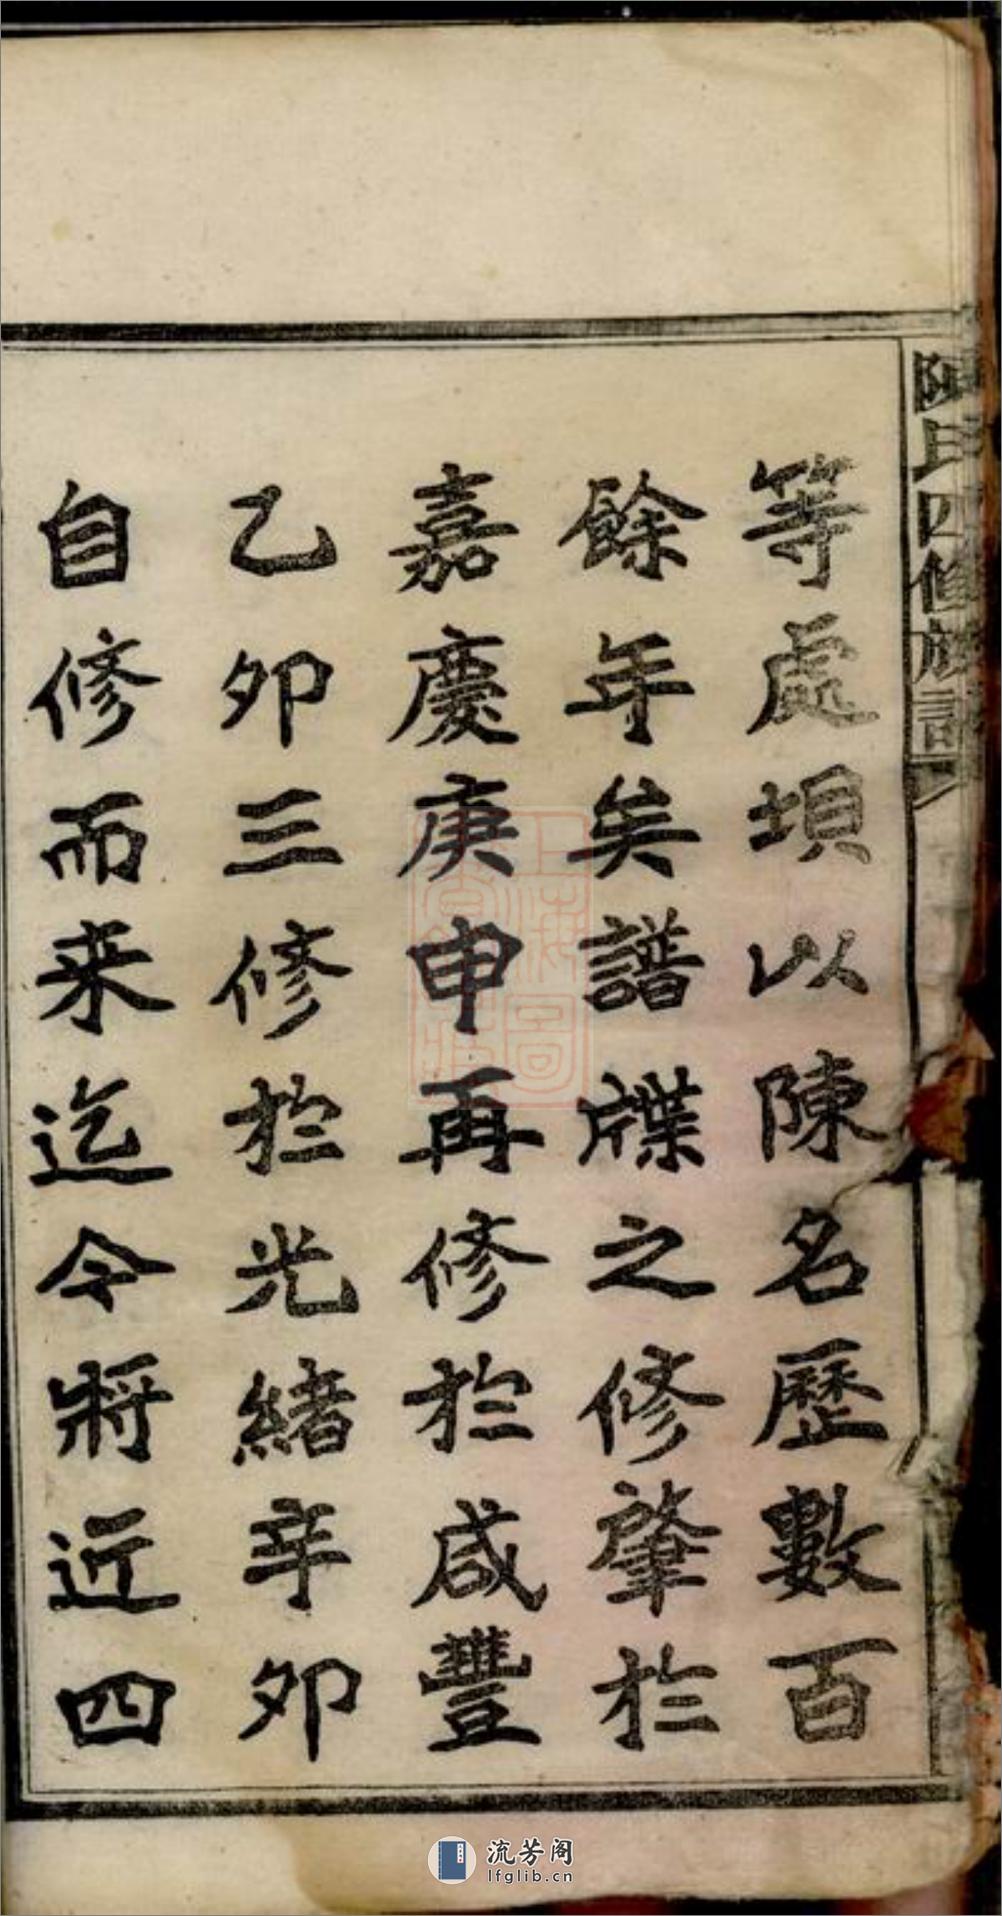 陳氏四修族譜
等處垻以陳名歷數百
餘年矣譜牒之修肇於
嘉慶庚申再修於咸豐
乙卯三修於光緒辛卯
自修而来迄今將近四
上海圖書館藏
流芳阁
lfglib.cn